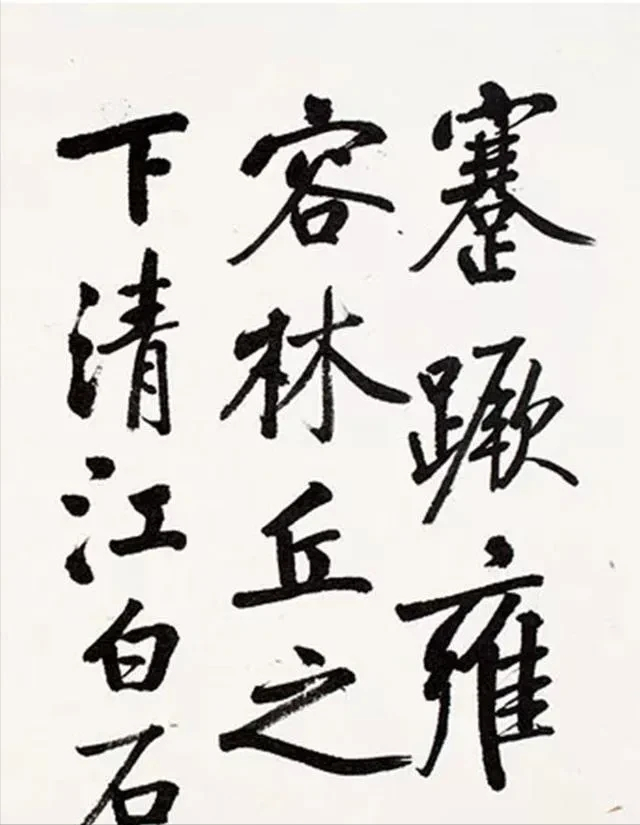 蹇蹶雍
容林丘之
下清江白石